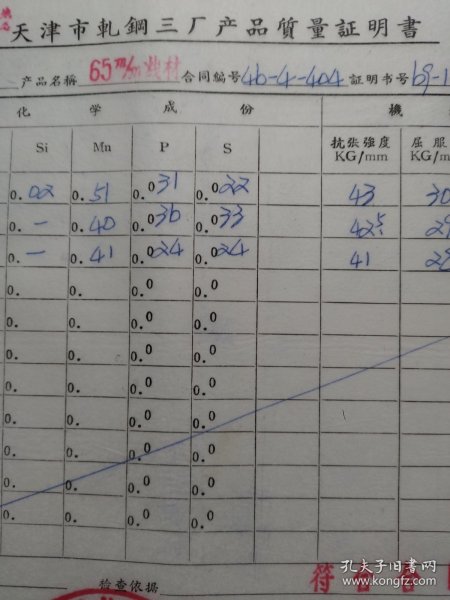 天津市軋鋼三厂产品質量証明書
产品名稱 65m/m 线材 合同編号 46-4-404 証明书号 69-1
化 学 成 份 機
Si Mn P S 抗张強度 KG/mm 屈服 KG/m
0.02 0.51 0.031 0.022 43 30
0.- 0.40 0.036 0.033 42.5 29
0.- 0.41 0.024 0.024 41 28
0. 0. 0.0 0.0
0. 0. 0.0 0.0
0. 0. 0.0 0.0
0. 0. 0.0 0.0
0. 0. 0.0 0.0
0. 0. 0.0 0.0
0. 0. 0.0 0.0
0. 0. 0.0 0.0
檢查依据 符合
孔夫子旧書网
www.kongfz.com